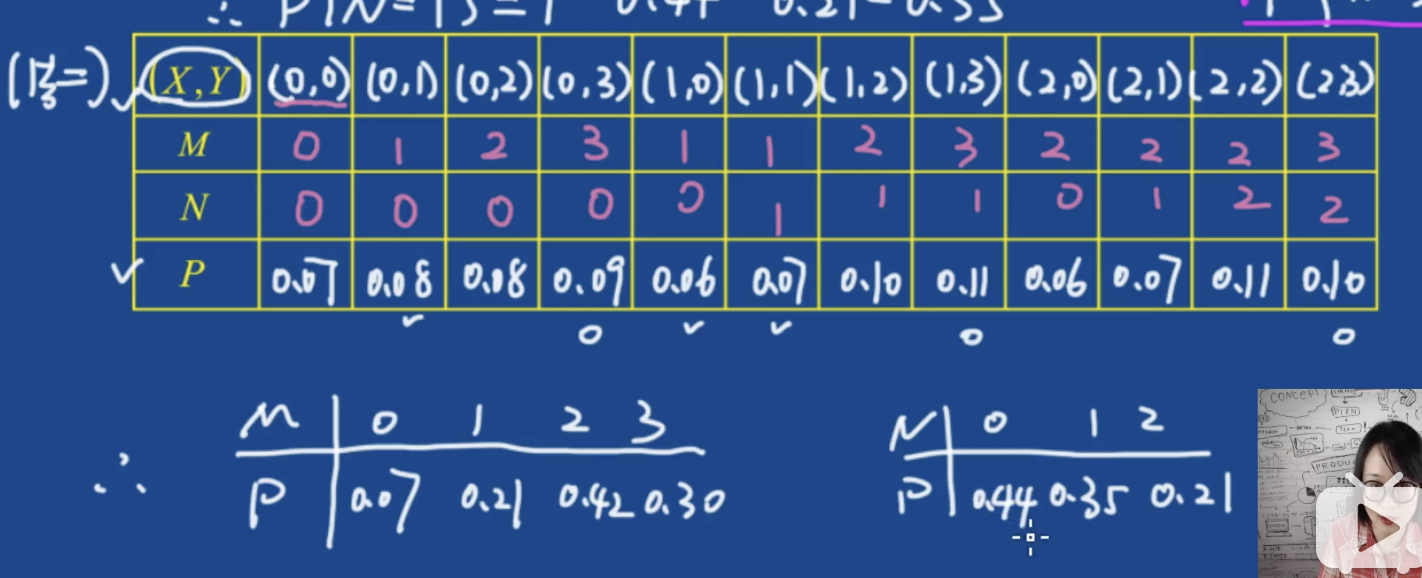 ∴ P{N=1}=1-0.44-0.21=0.35
(法二) (X,Y) (0,0) (0,1) (0,2) (0,3) (1,0) (1,1) (1,2) (1,3) (2,0) (2,1) (2,2) (2,3)
M 0 1 2 3 1 1 2 3 2 2 2 3
N 0 0 0 0 0 1 1 1 0 1 2 2
P 0.07 0.08 0.08 0.09 0.06 0.07 0.10 0.11 0.06 0.07 0.11 0.10
M 0 1 2 3
∴ P 0.07 0.21 0.42 0.30
N 0 1 2
P 0.44 0.35 0.21
CONCEPT
PLAN